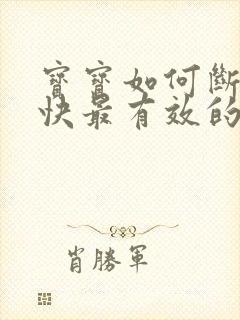 寶寶如何斷
快最有效的
肖勝軍